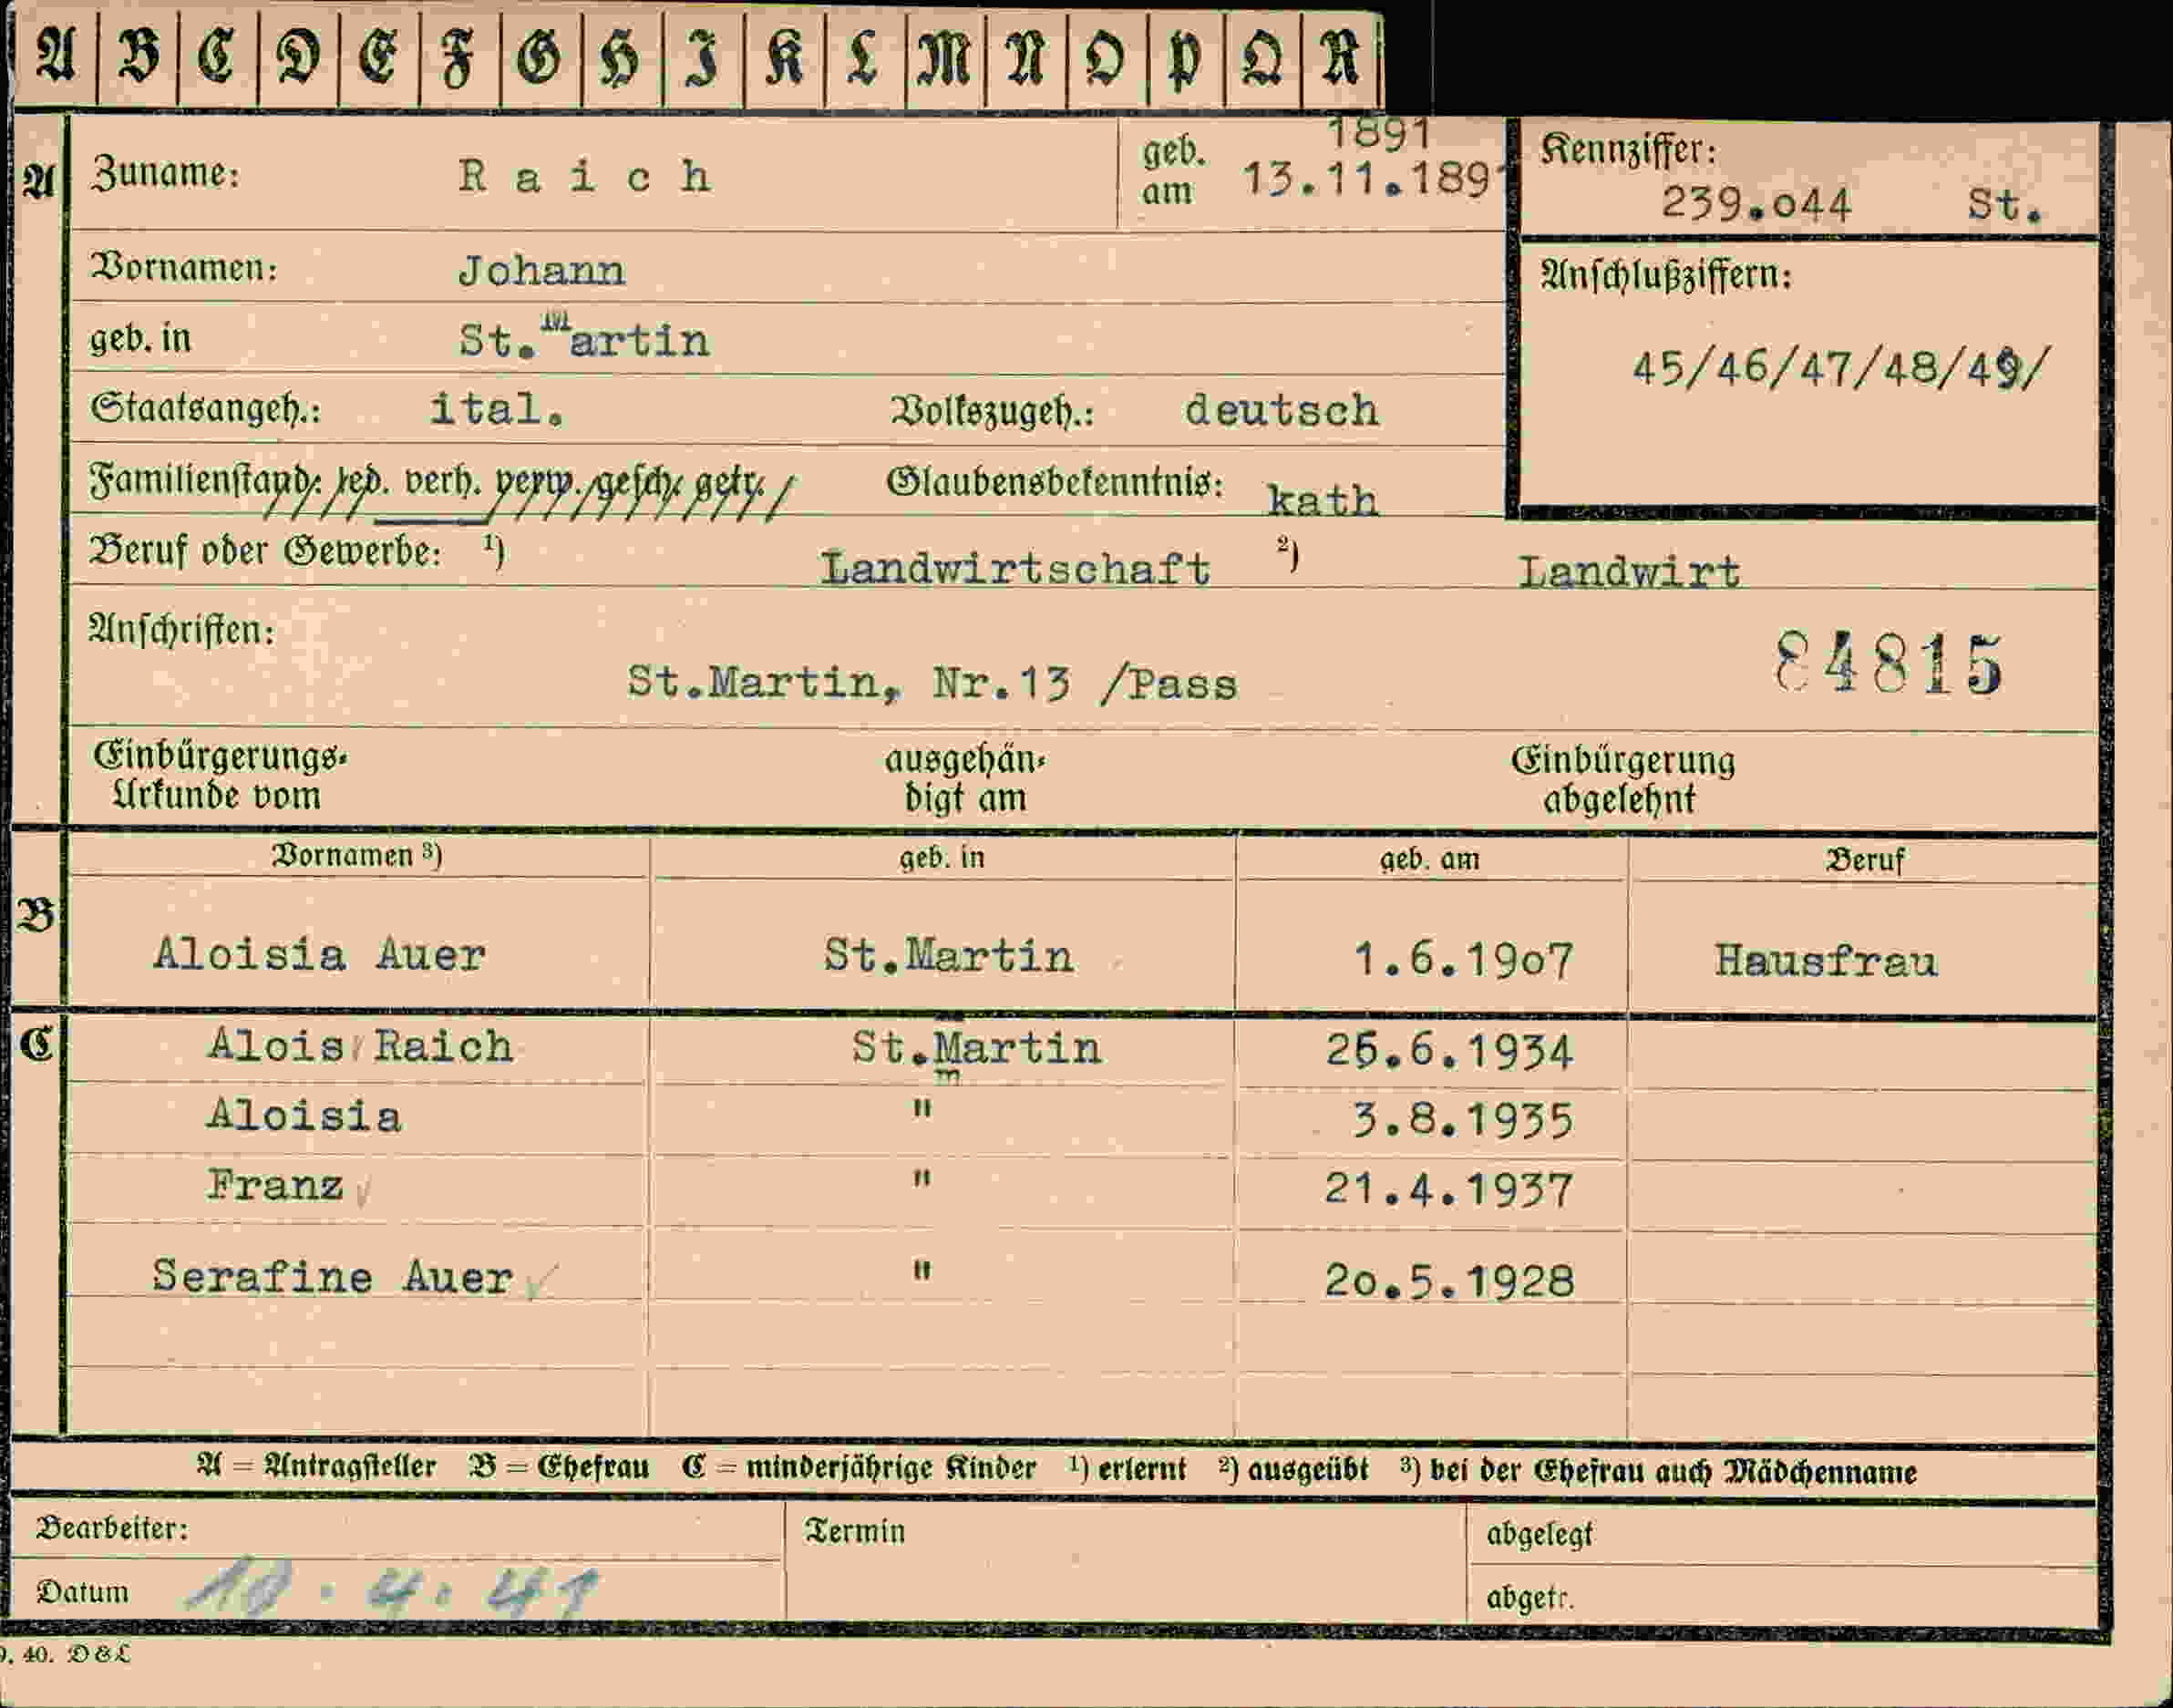 A B C D E F G H I K L M N O P Q R
A Zuname: Raich geb. am 1891 13.11.1891
Kennziffer: 239.o44 St.
Vornamen: Johann
Anschlußziffern:
geb. in St.Martin
45/46/47/48/49/
Staatsangeh.: ital. Volkszugeh.: deutsch
Familienstand: led. verh. verw. gesch. getr. Glaubensbekenntnis: kath
Beruf oder Gewerbe: ¹) Landwirtschaft ²) Landwirt
Anschriften:
St.Martin, Nr.13 /Pass 84815
Einbürgerungs- ausgehän- Einbürgerung
Urkunde vom digt am abgelehnt
B Vornamen ³) geb. in geb. am Beruf
Aloisia Auer St.Martin 1.6.19o7 Hausfrau
C Alois Raich St.Martin 25.6.1934
m
Aloisia " 3.8.1935
Franz " 21.4.1937
Serafine Auer " 2o.5.1928
A = Antragsteller B = Ehefrau C = minderjährige Kinder ¹) erlernt ²) ausgeübt ³) bei der Ehefrau auch Mädchenname
Bearbeiter: Termin abgelegt
Datum 10.4.41 abgetr.
40. D&L